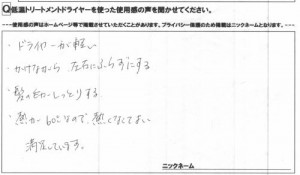 Q低温トリートメントドライヤーを使った使用感の声を聞かせてください。
使用感の声はホームページ等で掲載させていただくことがあります。プライバシー保護のため掲載はニックネームとなります。
・ドライヤーが軽い
・かけながら 左右にふらずにする
・髪の毛がしっとりする
・熱が60℃なので、熱くなくてよい
満足しています。
ニックネーム